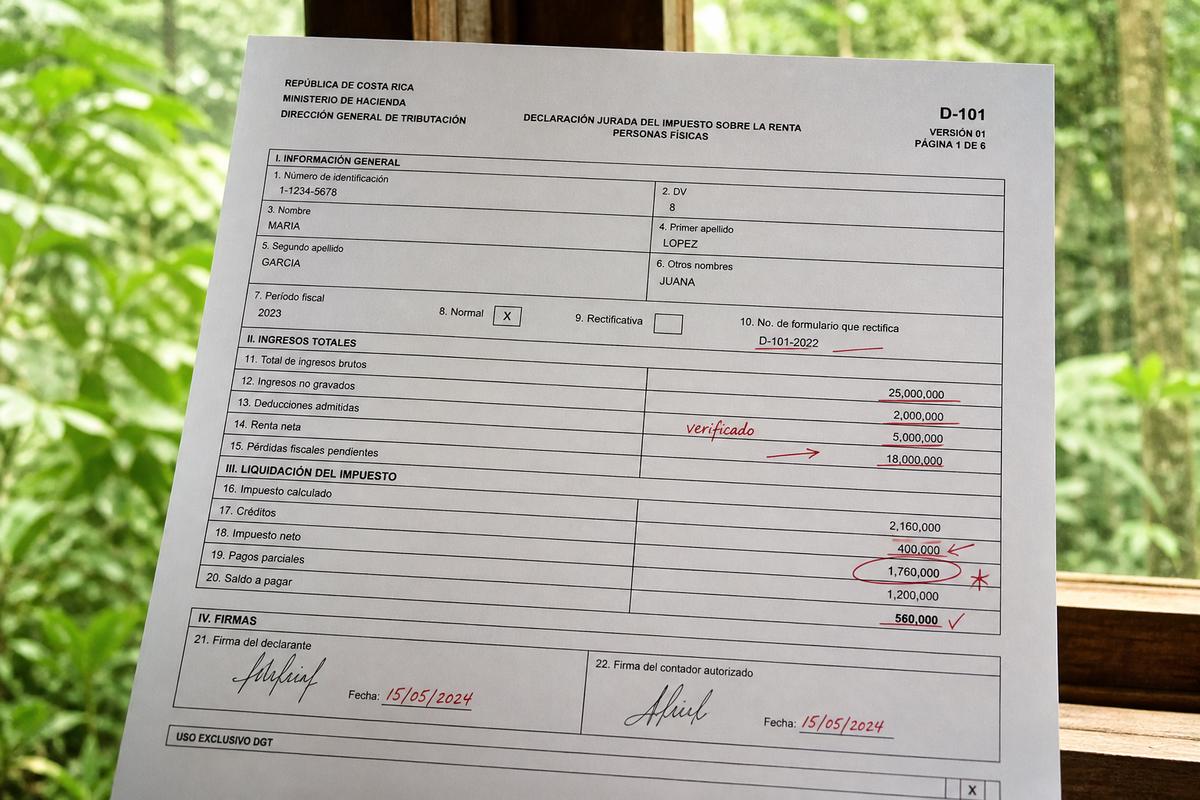 REPÚBLICA DE COSTA RICA
MINISTERIO DE HACIENDA
DIRECCIÓN GENERAL DE TRIBUTACIÓN
DECLARACIÓN JURADA DEL IMPUESTO SOBRE LA RENTA
PERSONAS FÍSICAS
D-101
VERSIÓN 01
PÁGINA 1 DE 6
I. INFORMACIÓN GENERAL
1. Número de identificación
1-1234-5678
2. DV
8
3. Nombre
MARIA
4. Primer apellido
LOPEZ
5. Segundo apellido
GARCIA
6. Otros nombres
JUANA
7. Período fiscal
2023
8. Normal X
9. Rectificativa
10. No. de formulario que rectifica
D-101-2022
II. INGRESOS TOTALES
11. Total de ingresos brutos 25,000,000
12. Ingresos no gravados 2,000,000
13. Deducciones admitidas 5,000,000
14. Renta neta verificado 18,000,000
15. Pérdidas fiscales pendientes
III. LIQUIDACIÓN DEL IMPUESTO
16. Impuesto calculado 2,160,000
17. Créditos 400,000
18. Impuesto neto 1,760,000 *
19. Pagos parciales 1,200,000
20. Saldo a pagar 560,000 ✓
IV. FIRMAS
21. Firma del declarante
Fecha: 15/05/2024
22. Firma del contador autorizado
Fecha: 15/05/2024
USO EXCLUSIVO DGT
X